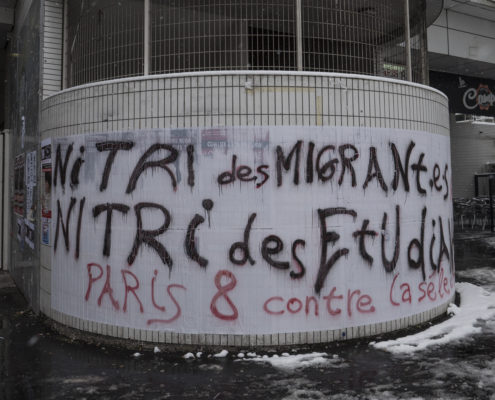 Ni TRi des MiGRANt.es
NiTRi des EtUdiA
PARiS 8 contre la séle